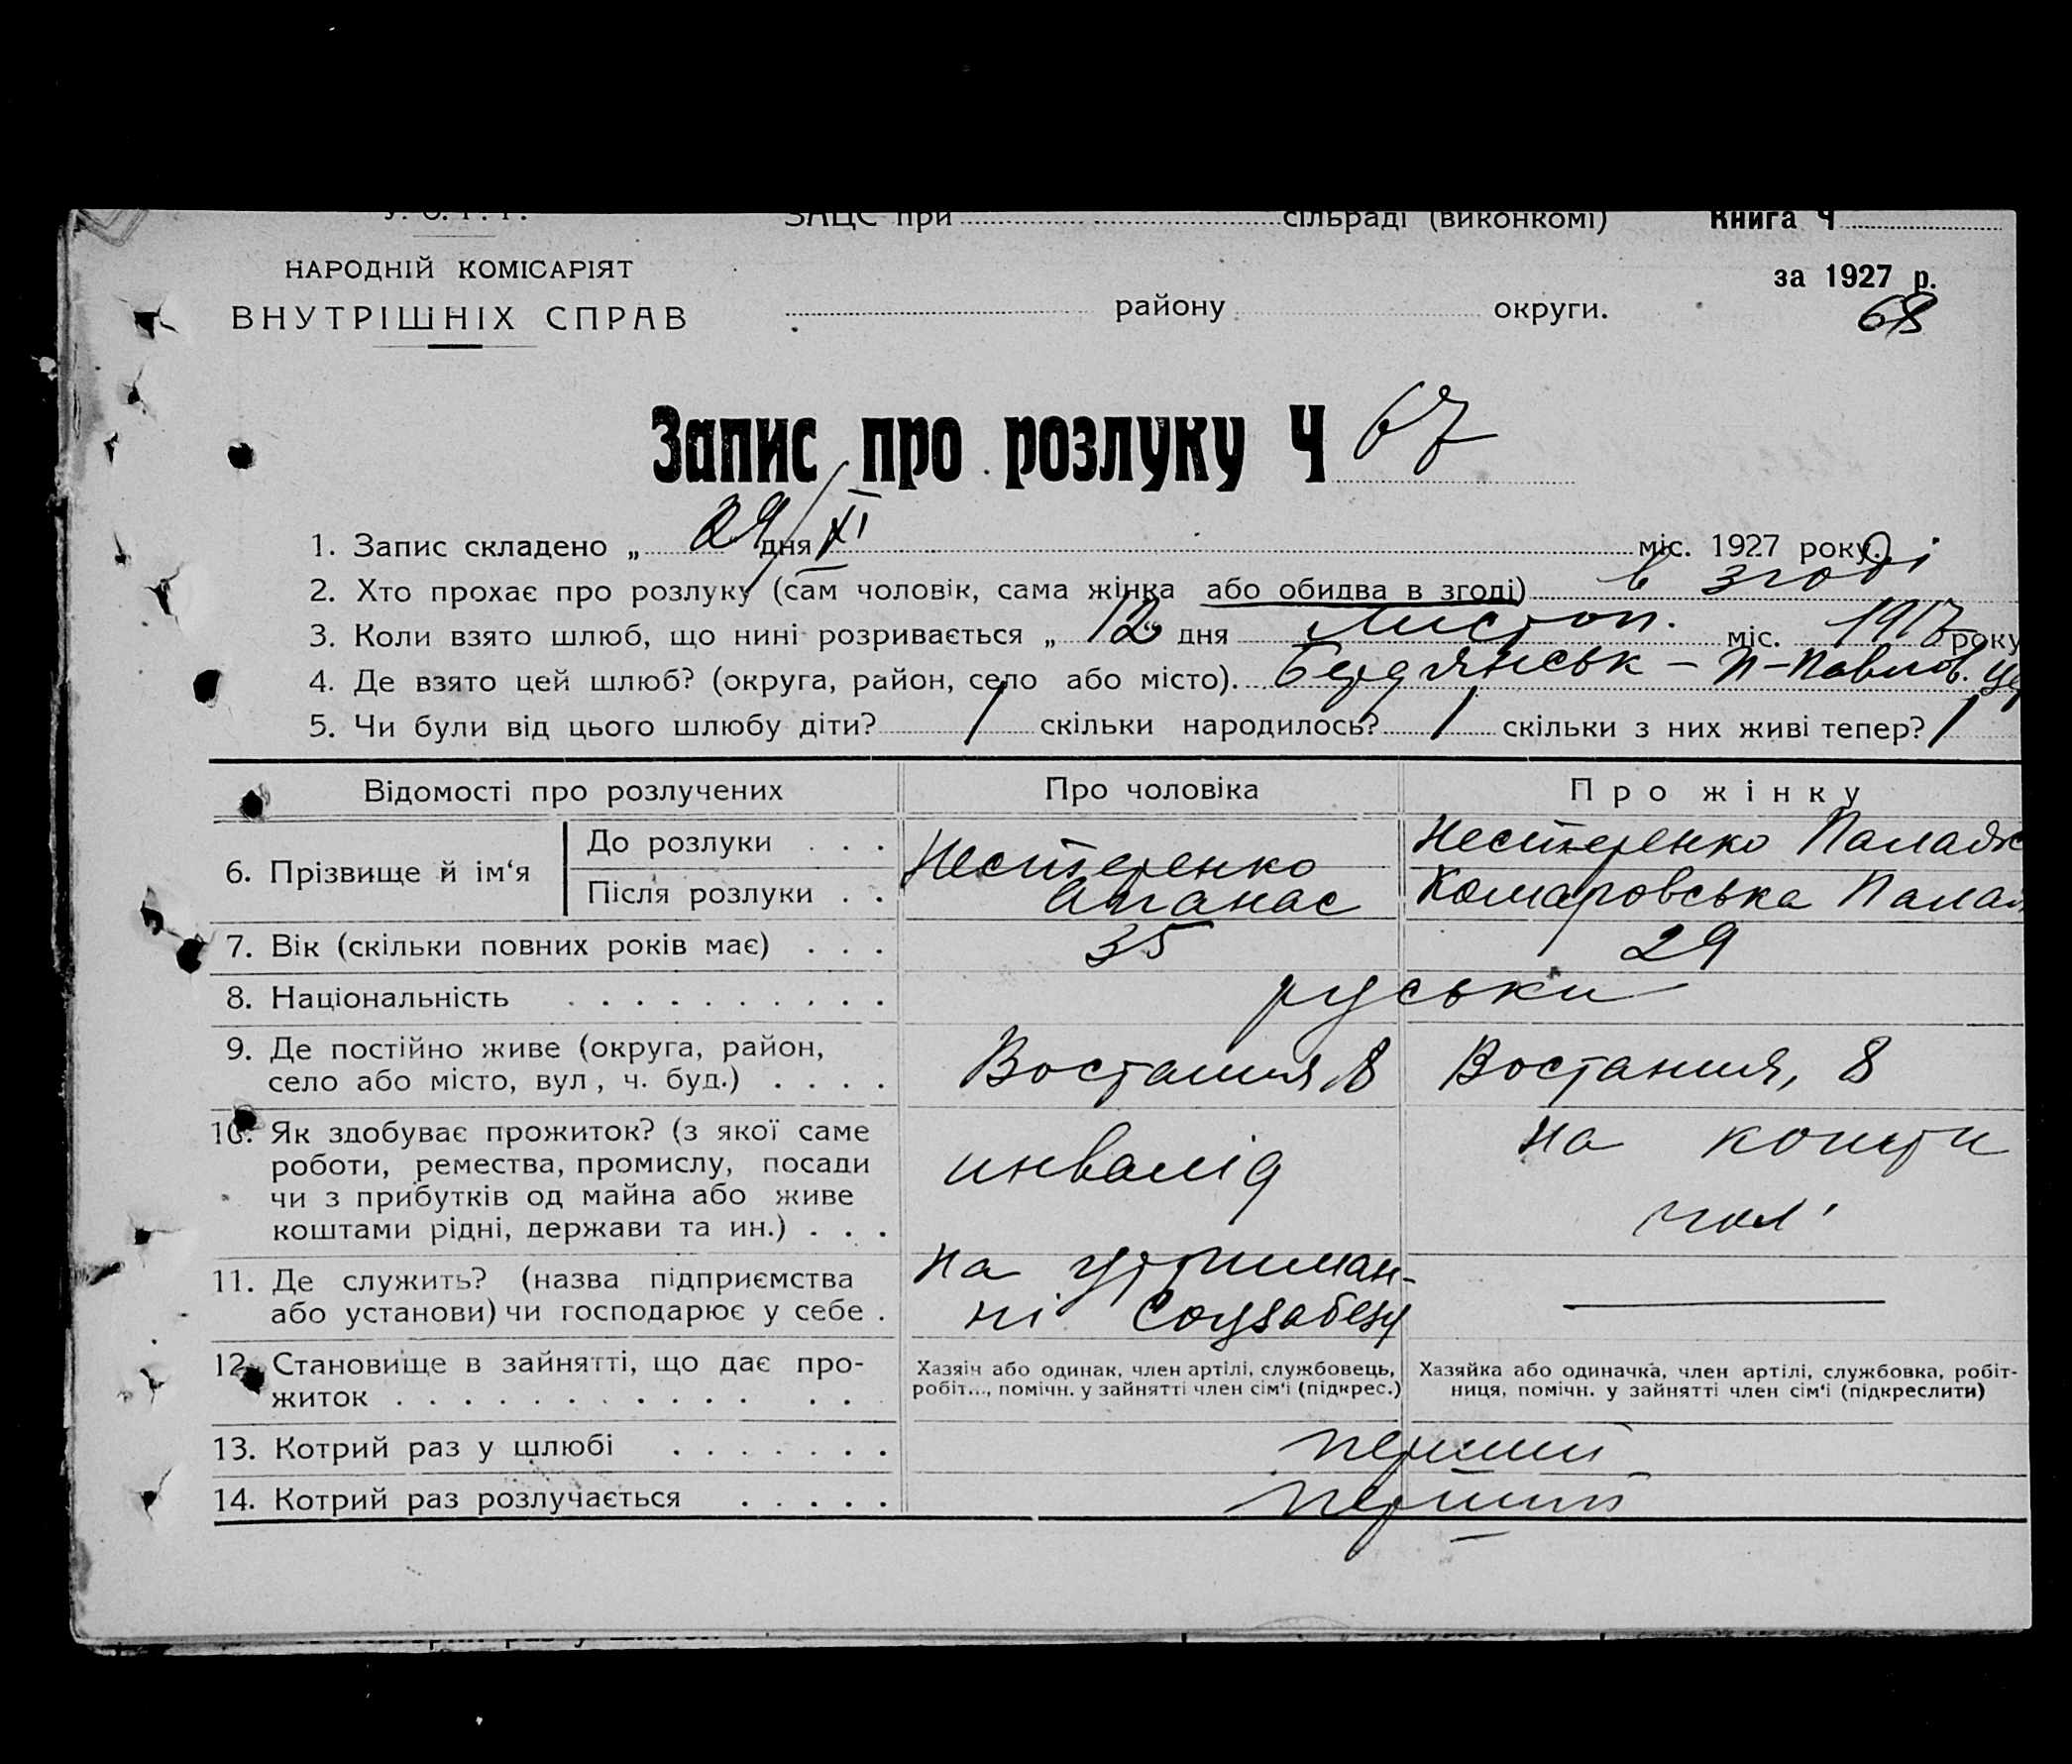 У. С. Р. Р.
ЗАЦС при сільраді (виконкомі) Книга Ч
НАРОДНІЙ КОМІСАРІЯТ
ВНУТРІШНІХ СПРАВ
району округи.
за 1927 р.
68
Запис про розлуку Ч 67
1. Запис складено „ 29 дня XI міс. 1927 року.
2. Хто прохає про розлуку (сам чоловік, сама жінка або обидва в згоді) в згоді
3. Коли взято шлюб, що нині розривається „ 12 “ дня Листоп. міс. 1917 року
4. Де взято цей шлюб? (округа, район, село або місто). Бердянськ - П-Павлов. це
5. Чи були від цього шлюбу діти? 1 скільки народилось? 1 скільки з них живі тепер? 1
Відомості про розлучених Про чоловіка Про жінку
6. Прізвище й ім‘я
До розлуки . . . Нестеренко Нестеренко Палаж
Після розлуки . . Апанас Комаровська Пала
7. Вік (скільки повних років має) . . . 35 29
8. Національність . . . . . . . . . . руськи
9. Де постійно живе (округа, район,
село або місто, вул, ч. буд.) . . . . Востания 8 Востания, 8
10. Як здобуває прожиток? (з якої саме
роботи, ремества, промислу, посади
чи з прибутків од майна або живе
коштами рідні, держави та ин.) . . .
инвалід
на кошти
чол.
11. Де служить? (назва підприємства
або установи) чи господарює у себе .
на утриман-
ні Соцзабезу
12. Становище в зайнятті, що дає про-
житок . . . . . . . . . . . . .
Хазяін або одинак, член артілі, службовець,
робіт..., помічн. у зайнятті член сім‘ї (підкрес.)
Хазяйка або одиначка, член артілі, службовка, робіт-
ниця, помічн. у зайнятті член сім‘ї (підкреслити)
13. Котрий раз у шлюбі . . . . . . . перший
14. Котрий раз розлучається . . . . . перший